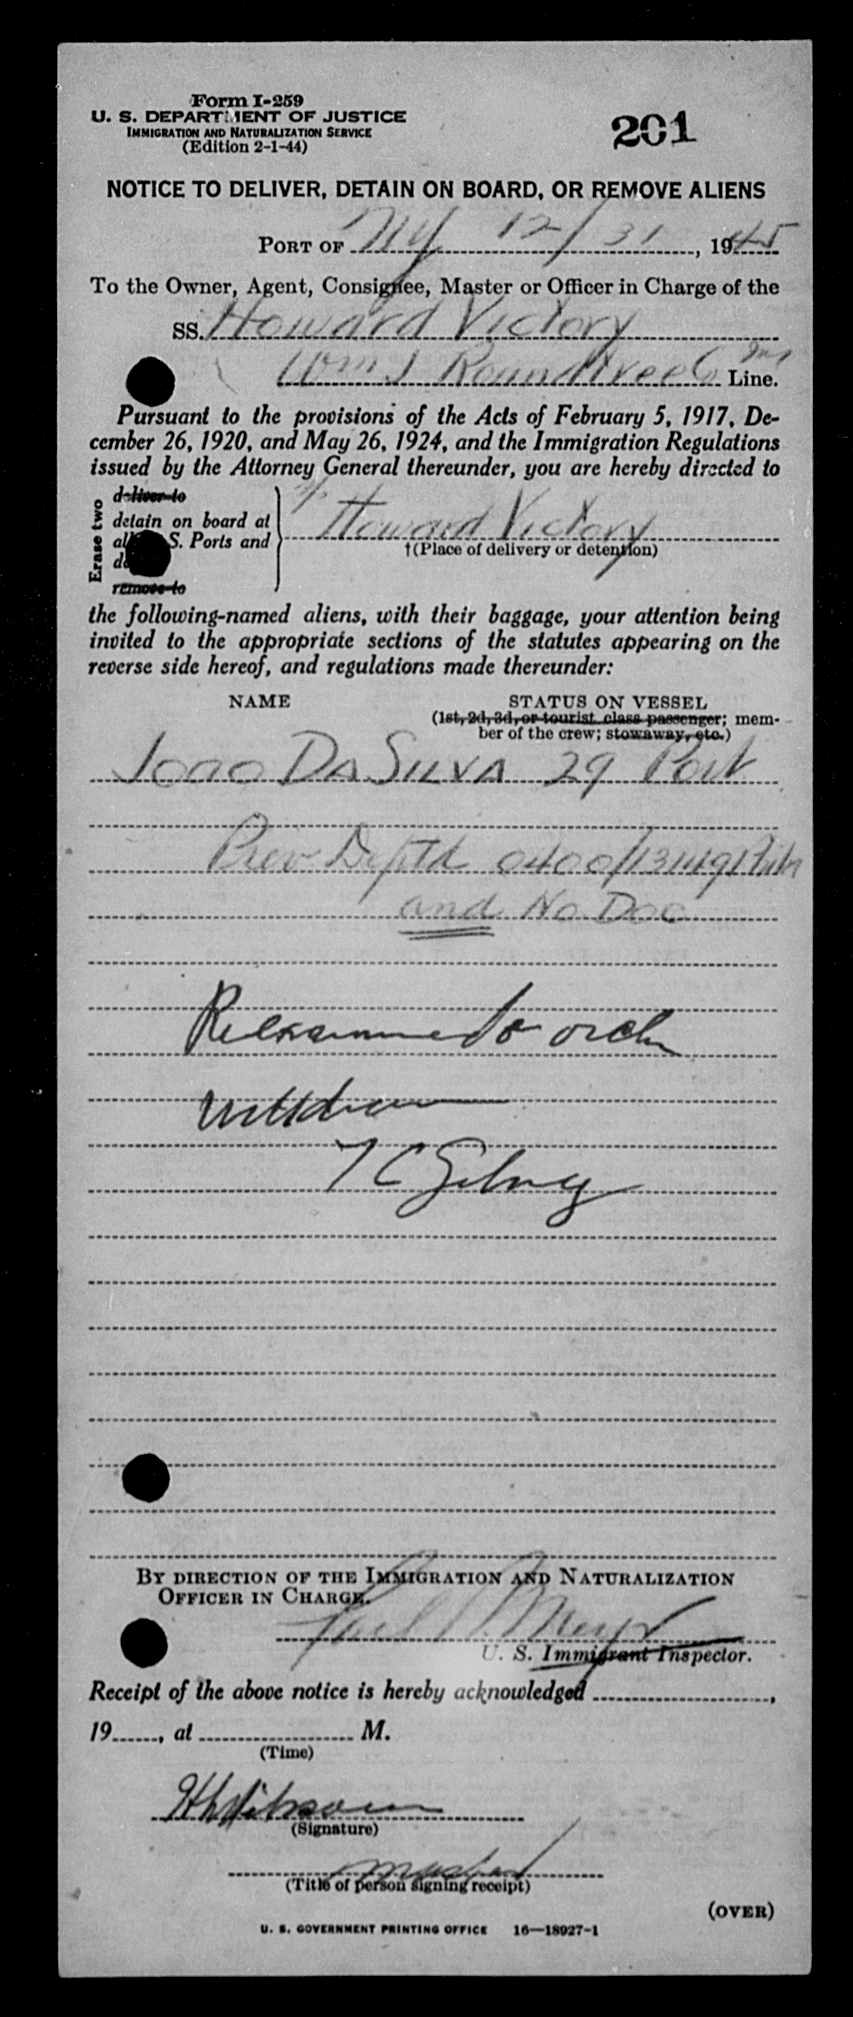 Form I-259
U. S. DEPARTMENT OF JUSTICE
IMMIGRATION AND NATURALIZATION SERVICE
(Edition 2-1-44)
201
NOTICE TO DELIVER, DETAIN ON BOARD, OR REMOVE ALIENS
PORT OF NY 12/31, 1945
To the Owner, Agent, Consignee, Master or Officer in Charge of the
SS. Howard Victory
Wm J Roundtree Co Inc Line.
Pursuant to the provisions of the Acts of February 5, 1917, De-
cember 26, 1920, and May 26, 1924, and the Immigration Regulations
issued by the Attorney General thereunder, you are hereby directed to
Erase two
deliver to
detain on board at
S. Ports and
remove to
Howard Victory
†(Place of delivery or detention)
the following-named aliens, with their baggage, your attention being
invited to the appropriate sections of the statutes appearing on the
reverse side hereof, and regulations made thereunder:
NAME STATUS ON VESSEL
(1st, 2d, 3d, or tourist class passenger; mem-
ber of the crew; stowaway, etc.)
Joao Da Silva 29 Port
Prev Deptd 0400/13491
and No Doc
Reexamined & order
withdrawn
By direction of the Immigration and Naturalization
Officer in Charge.
U. S. Immigrant Inspector.
Receipt of the above notice is hereby acknowledged ,
19 , at M.
(Time)
(Signature)
Master
(Title of person signing receipt)
(OVER)
U. S. GOVERNMENT PRINTING OFFICE 16—18927-1